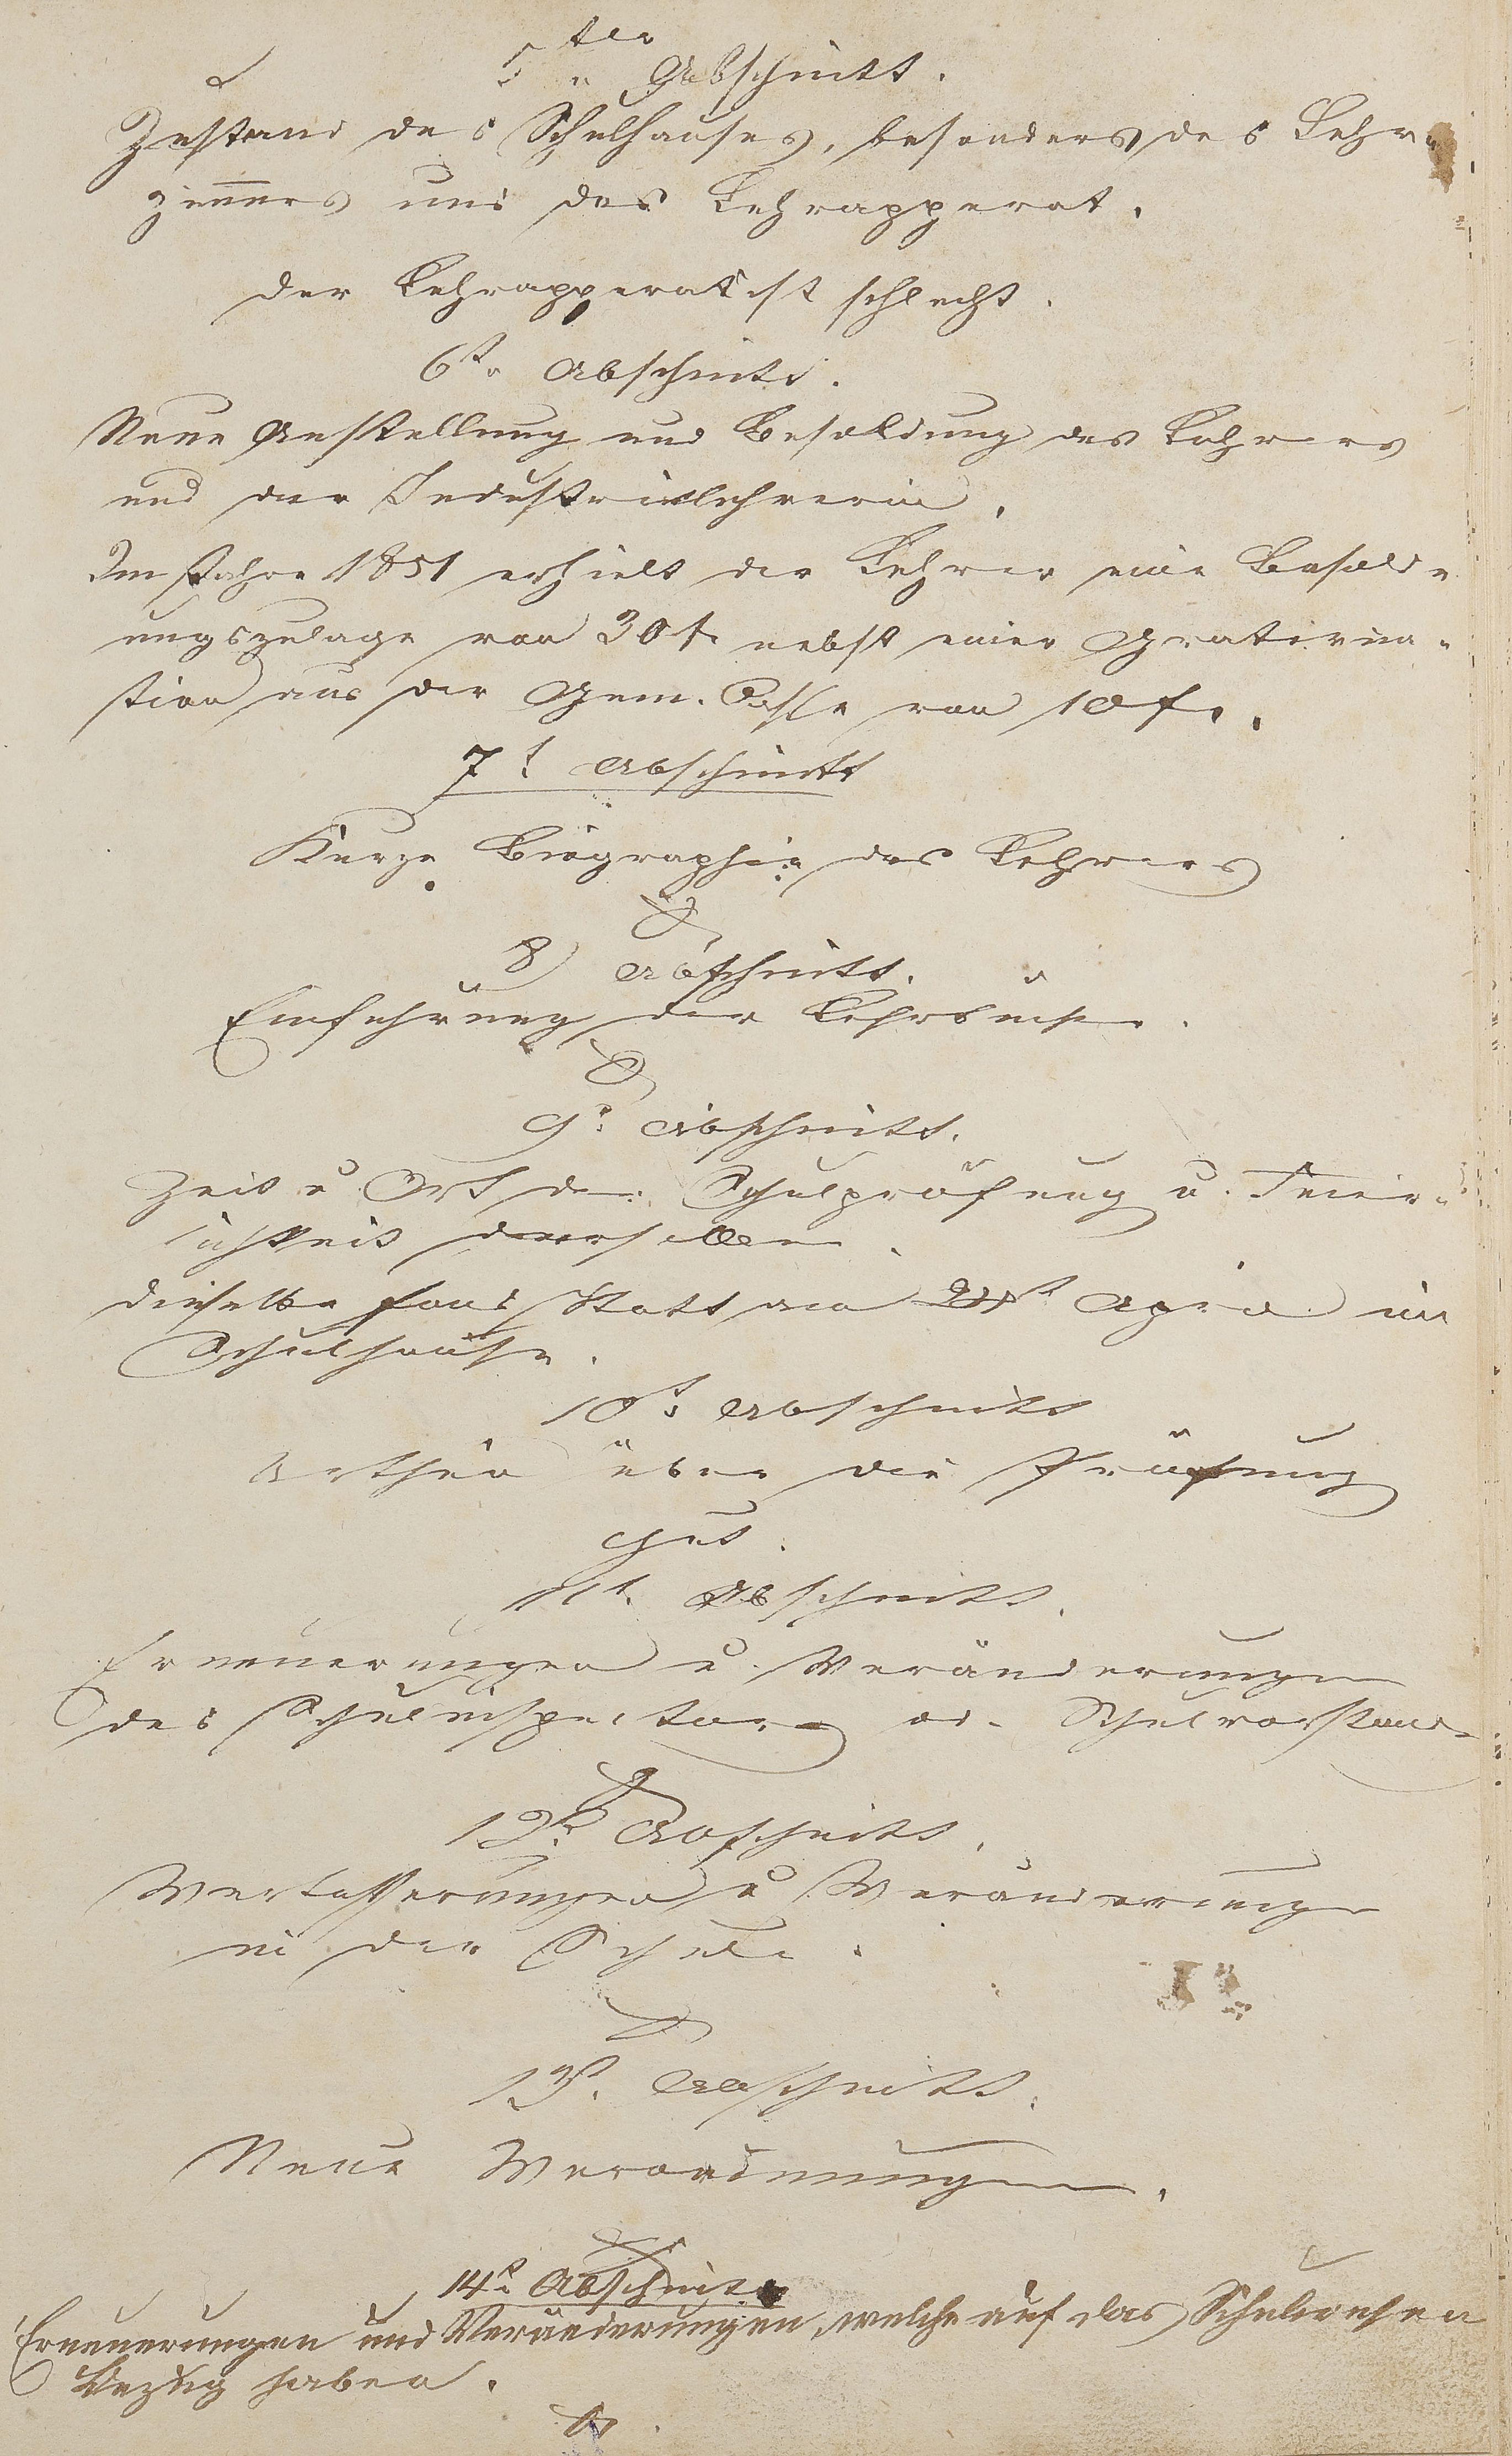 5ter Abschnitt.
Zustand des Schulhauses, besonders des Lehr-
zimmers und des Lehrapperat.
Der Lehrapperat ist schlecht.
6t. Abschnitt.
Neue Anstellung und Besoldung des Lehrers
und der Industrielehrerin.
Im Jahre 1851 erhielt der Lehrer eine Besold-
ungszulage von 30 f. nebst einer
aus der Gem. Casse von 10 f.
7t Abschnitt
Kurze Biographie des Lehrers
8) Abschnitt.
Einführung der Lehrbücher.
9t. Abschnitt.
Zeit u. Ort der Schulprüfung u. Feier-
lichkeit derselben.
Dieselbe fand Statt am im
Schulhause.
10t. Abschnitt
über die Prüfung
gut.
11t. Abschnitt.
Erneuerungen u. Veränderungen
des Schulinspectors od. Schulvorstand
12t. Abschnitt.
Verbesserungen u Veränderungen
in der Schule.
13t. Abschnitt.
Neue Verordnungen.
14t. Abschnitt
Erneuerungen und Veränderungen, welche auf das Schulwesen
Bezug haben.